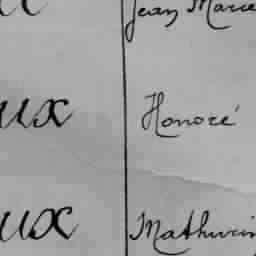 Jean Marie
ux Honoré
ux Mathurin